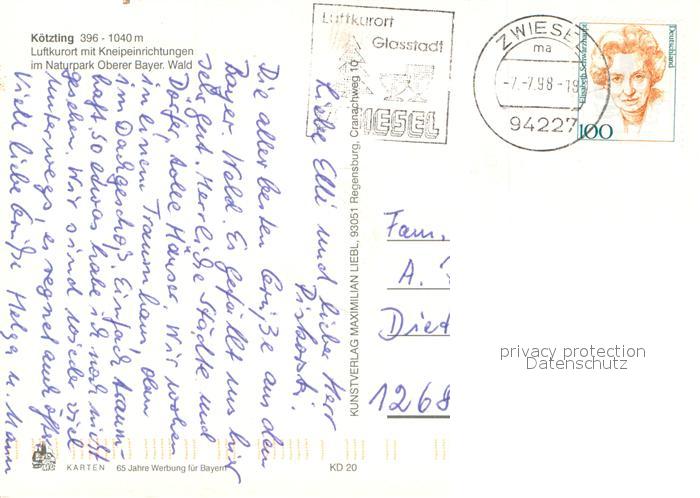 Kötzting 396 - 1040 m
Luftkurort mit Kneipeinrichtungen
im Naturpark Oberer Bayer. Wald
Luftkurort
Glasstadt
ZWIESEL
ZWIESEL
ma
-7.-7.98-19
94227
Deutschland
Elisabeth Schwarzhaupt
100
Liebe Elli und lieber Herr
Die allerbesten Grüße aus dem
Bayer. Wald. Es gefällt uns hier
sehr gut. Herrliche Städte und
Dörfer, tolle Häuser. Wir wohnen
in einem Traumhaus, dem
im Dachgeschoß. Einfach traum-
haft. So etwas habe ich noch nicht
gesehen. Wir sind wieder viel
unterwegs, es regnet auch öfter.
Viele liebe Grüße Helga u. Mann
KUNSTVERLAG MAXIMILIAN LIEBL, 93051 Regensburg, Cranachweg 10
Fam.
A.
Died
1268
privacy protection
Datenschutz
KARTEN 65 Jahre Werbung für Bayern
KD 20